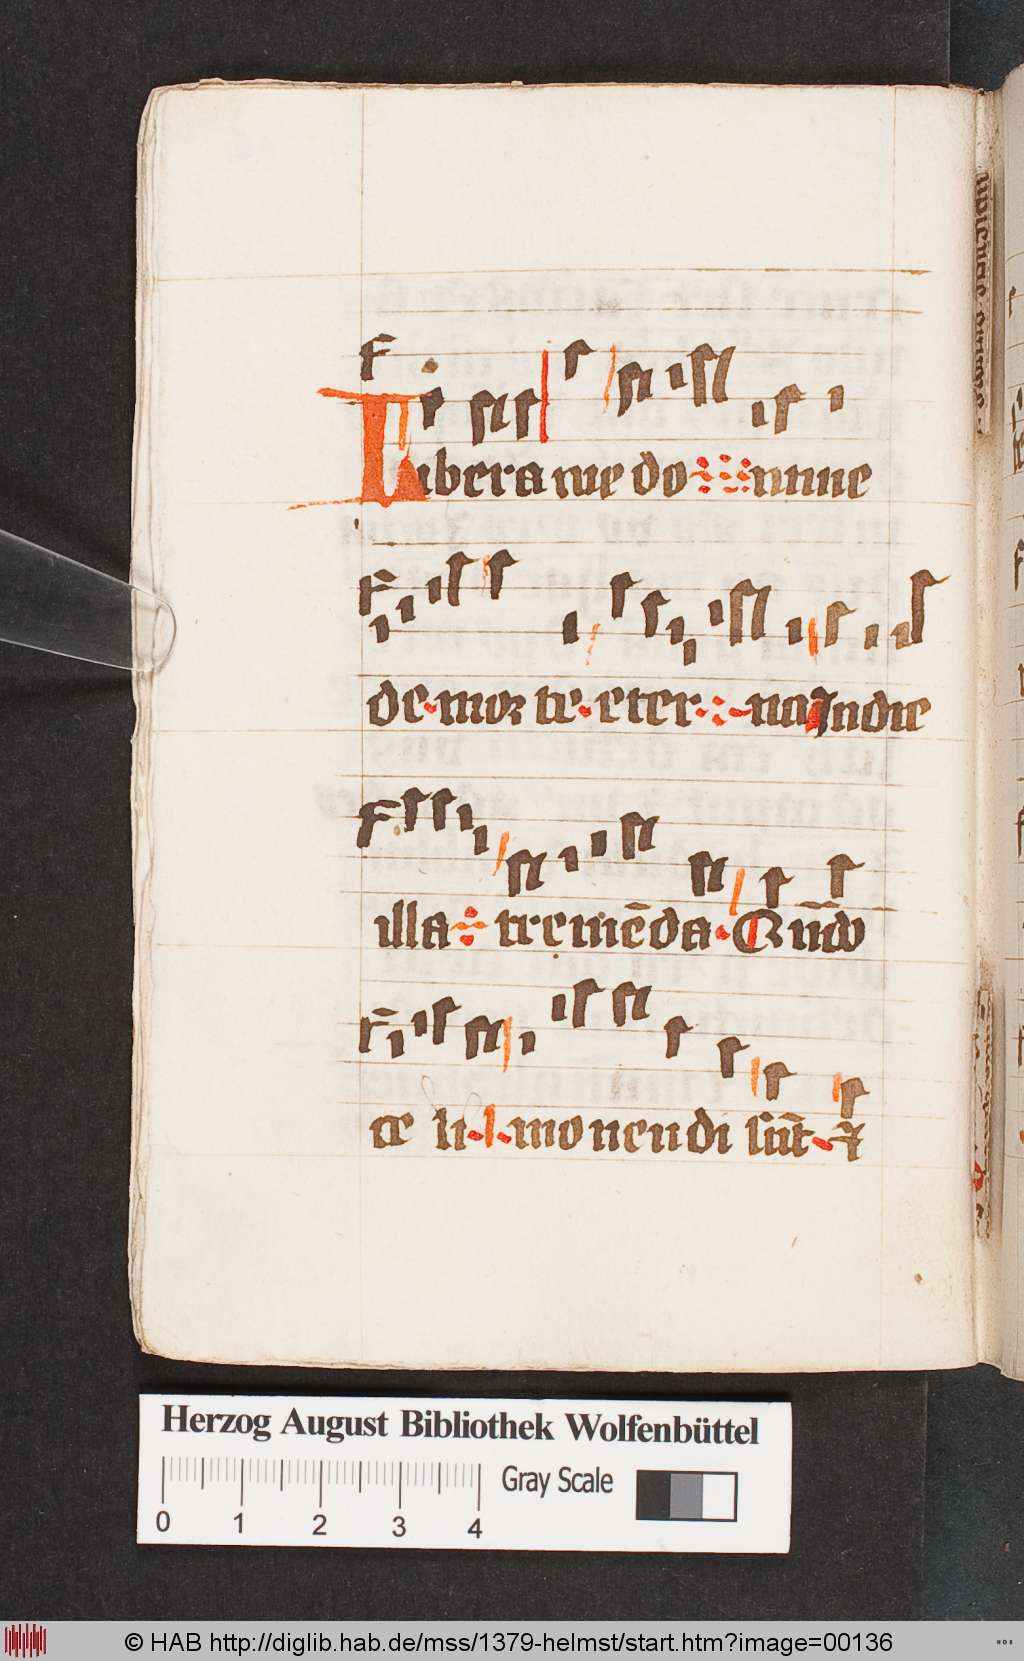 Libera me do mine
de morte eter na In die
illa tremēda Qn̄do
ce li monendi sūt ⁊
Herzog August Bibliothek Wolfenbüttel
Gray Scale
0 1 2 3 4
© HAB http://diglib.hab.de/mss/1379-helmst/start.htm?image=00136